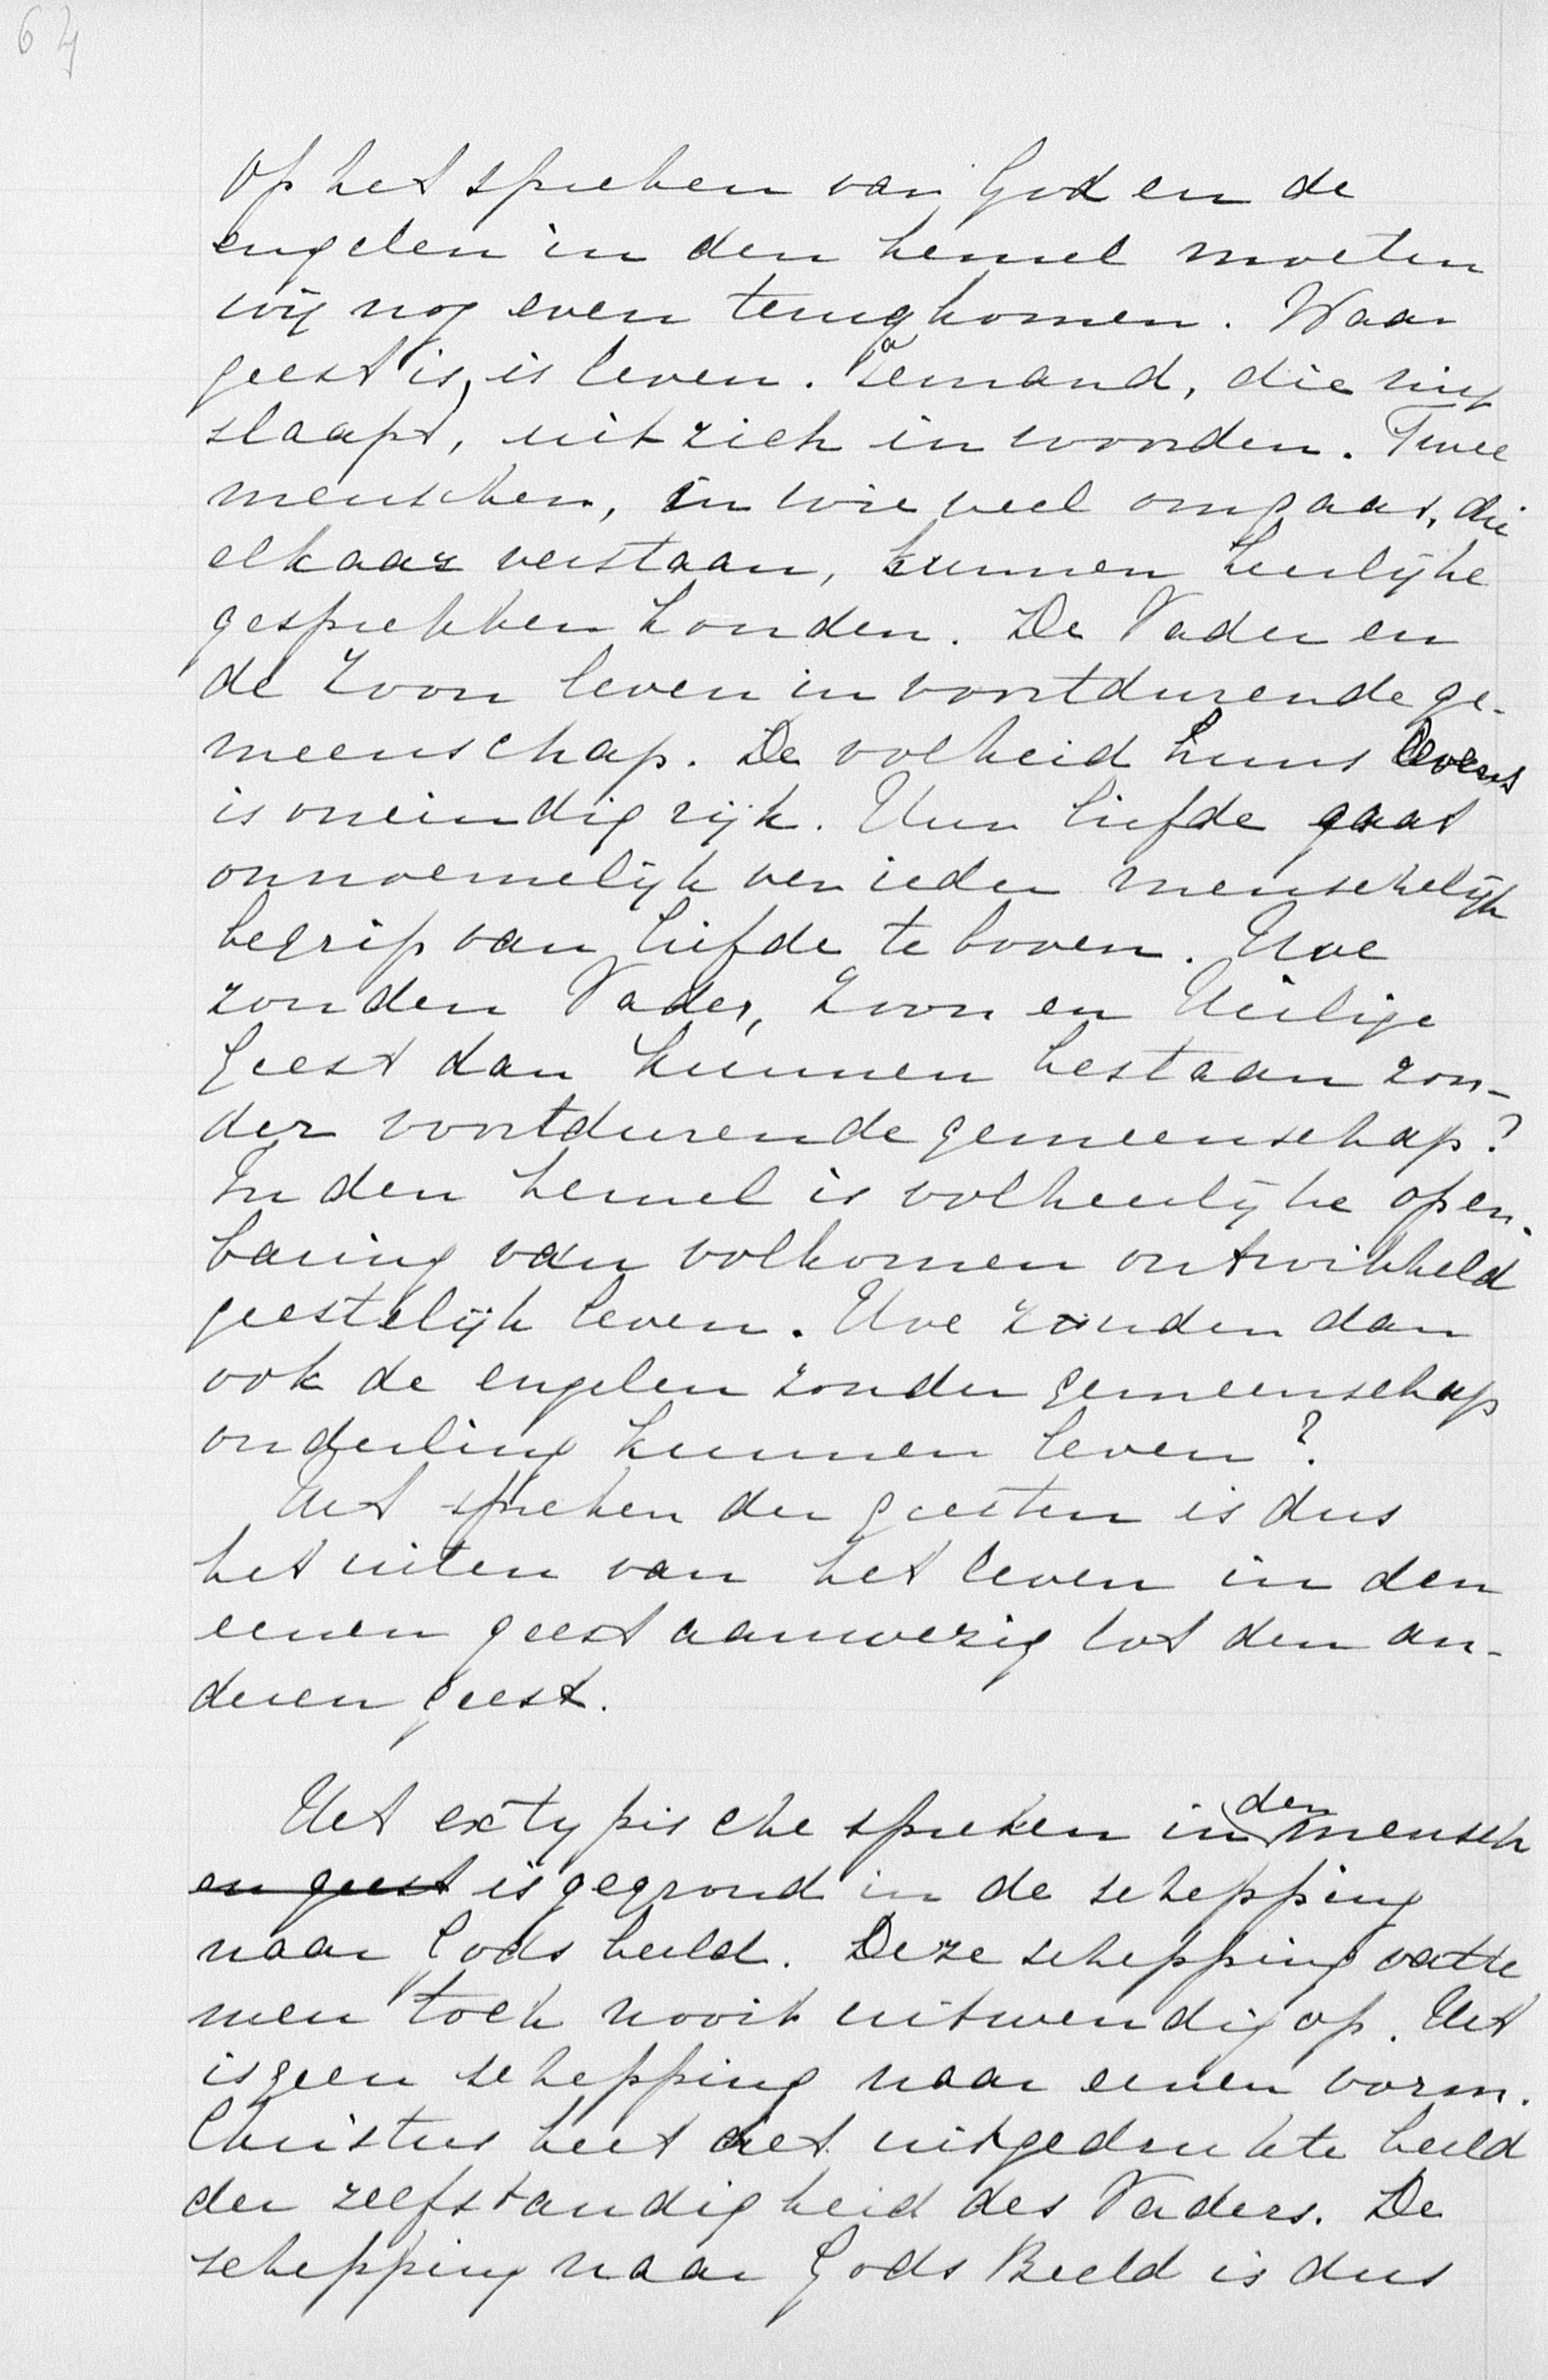 64
Op het spreken van God en de
engelen in den hemel moeten
wij nog even terugkomen. Waar
geest is, is leven. Iemand, die niet
slaapt, uit zich in woorden. Twee
menschen, in wie veel omgaat, die
elkaar verstaan, kunnen heerlijke
gesprekken houden. De Vader en
de Zoon leven in voortdurende ge-
meenschap. De volheid huns levens
is oneindig rijk. Hun liefde gaat
onnoemelijk ver ieder menschelijk
begrip van liefde te boven. Hoe
zouden Vader, Zoon en Heilige
Geest dan kunnen bestaan zon-
der voortdurende gemeenschap?
In den hemel is volheerlijke open-
baring van volkomen ontwikkeld
geestelijk leven. Hoe zouden dan
ook de engelen zonder gemeenschap
onderling kunnen leven?
Het spreken der geesten is dus
het uiten van het leven in den
eenen geest aanwezig tot den an-
deren geest.
Het extypische spreken in den mensch
en geest is gegrond in de schepping
naar Gods beeld. Deze schepping vatte
men toch nooit uitwendig op. Het
is geen schepping naar eenen vorm.
Christus heet het uitgedrukte beeld
der zelfstandigheid des Vaders. De
schepping naar Gods Beeld is dus